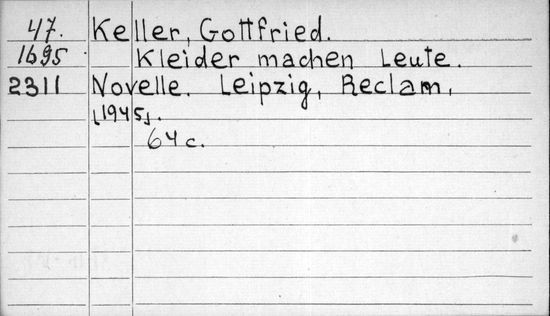 47. Keller, Gottfried.
1695 Kleider machen Leute.
2311 Novelle. Leipzig, Reclam,
[1945].
64 c.